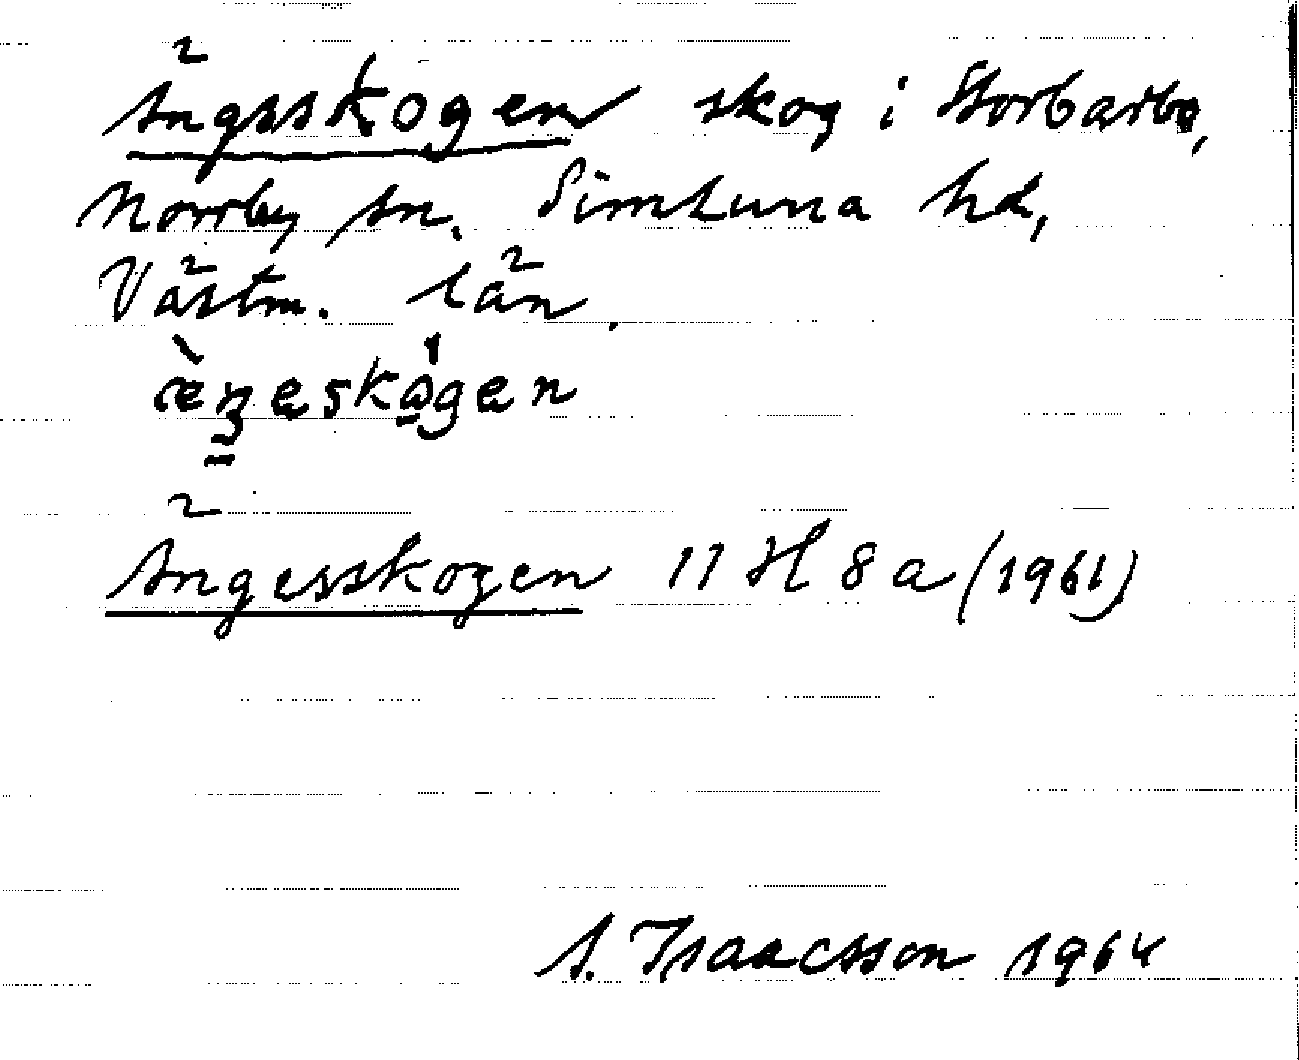 Ängsskogen skog i Storbarbo,
Norrby sn. Simtuna hd,
Västm. län.
æ̀ŋeskógen
Ängesskogen 11 H 8 a (1961)
A. Isaacsson 1964